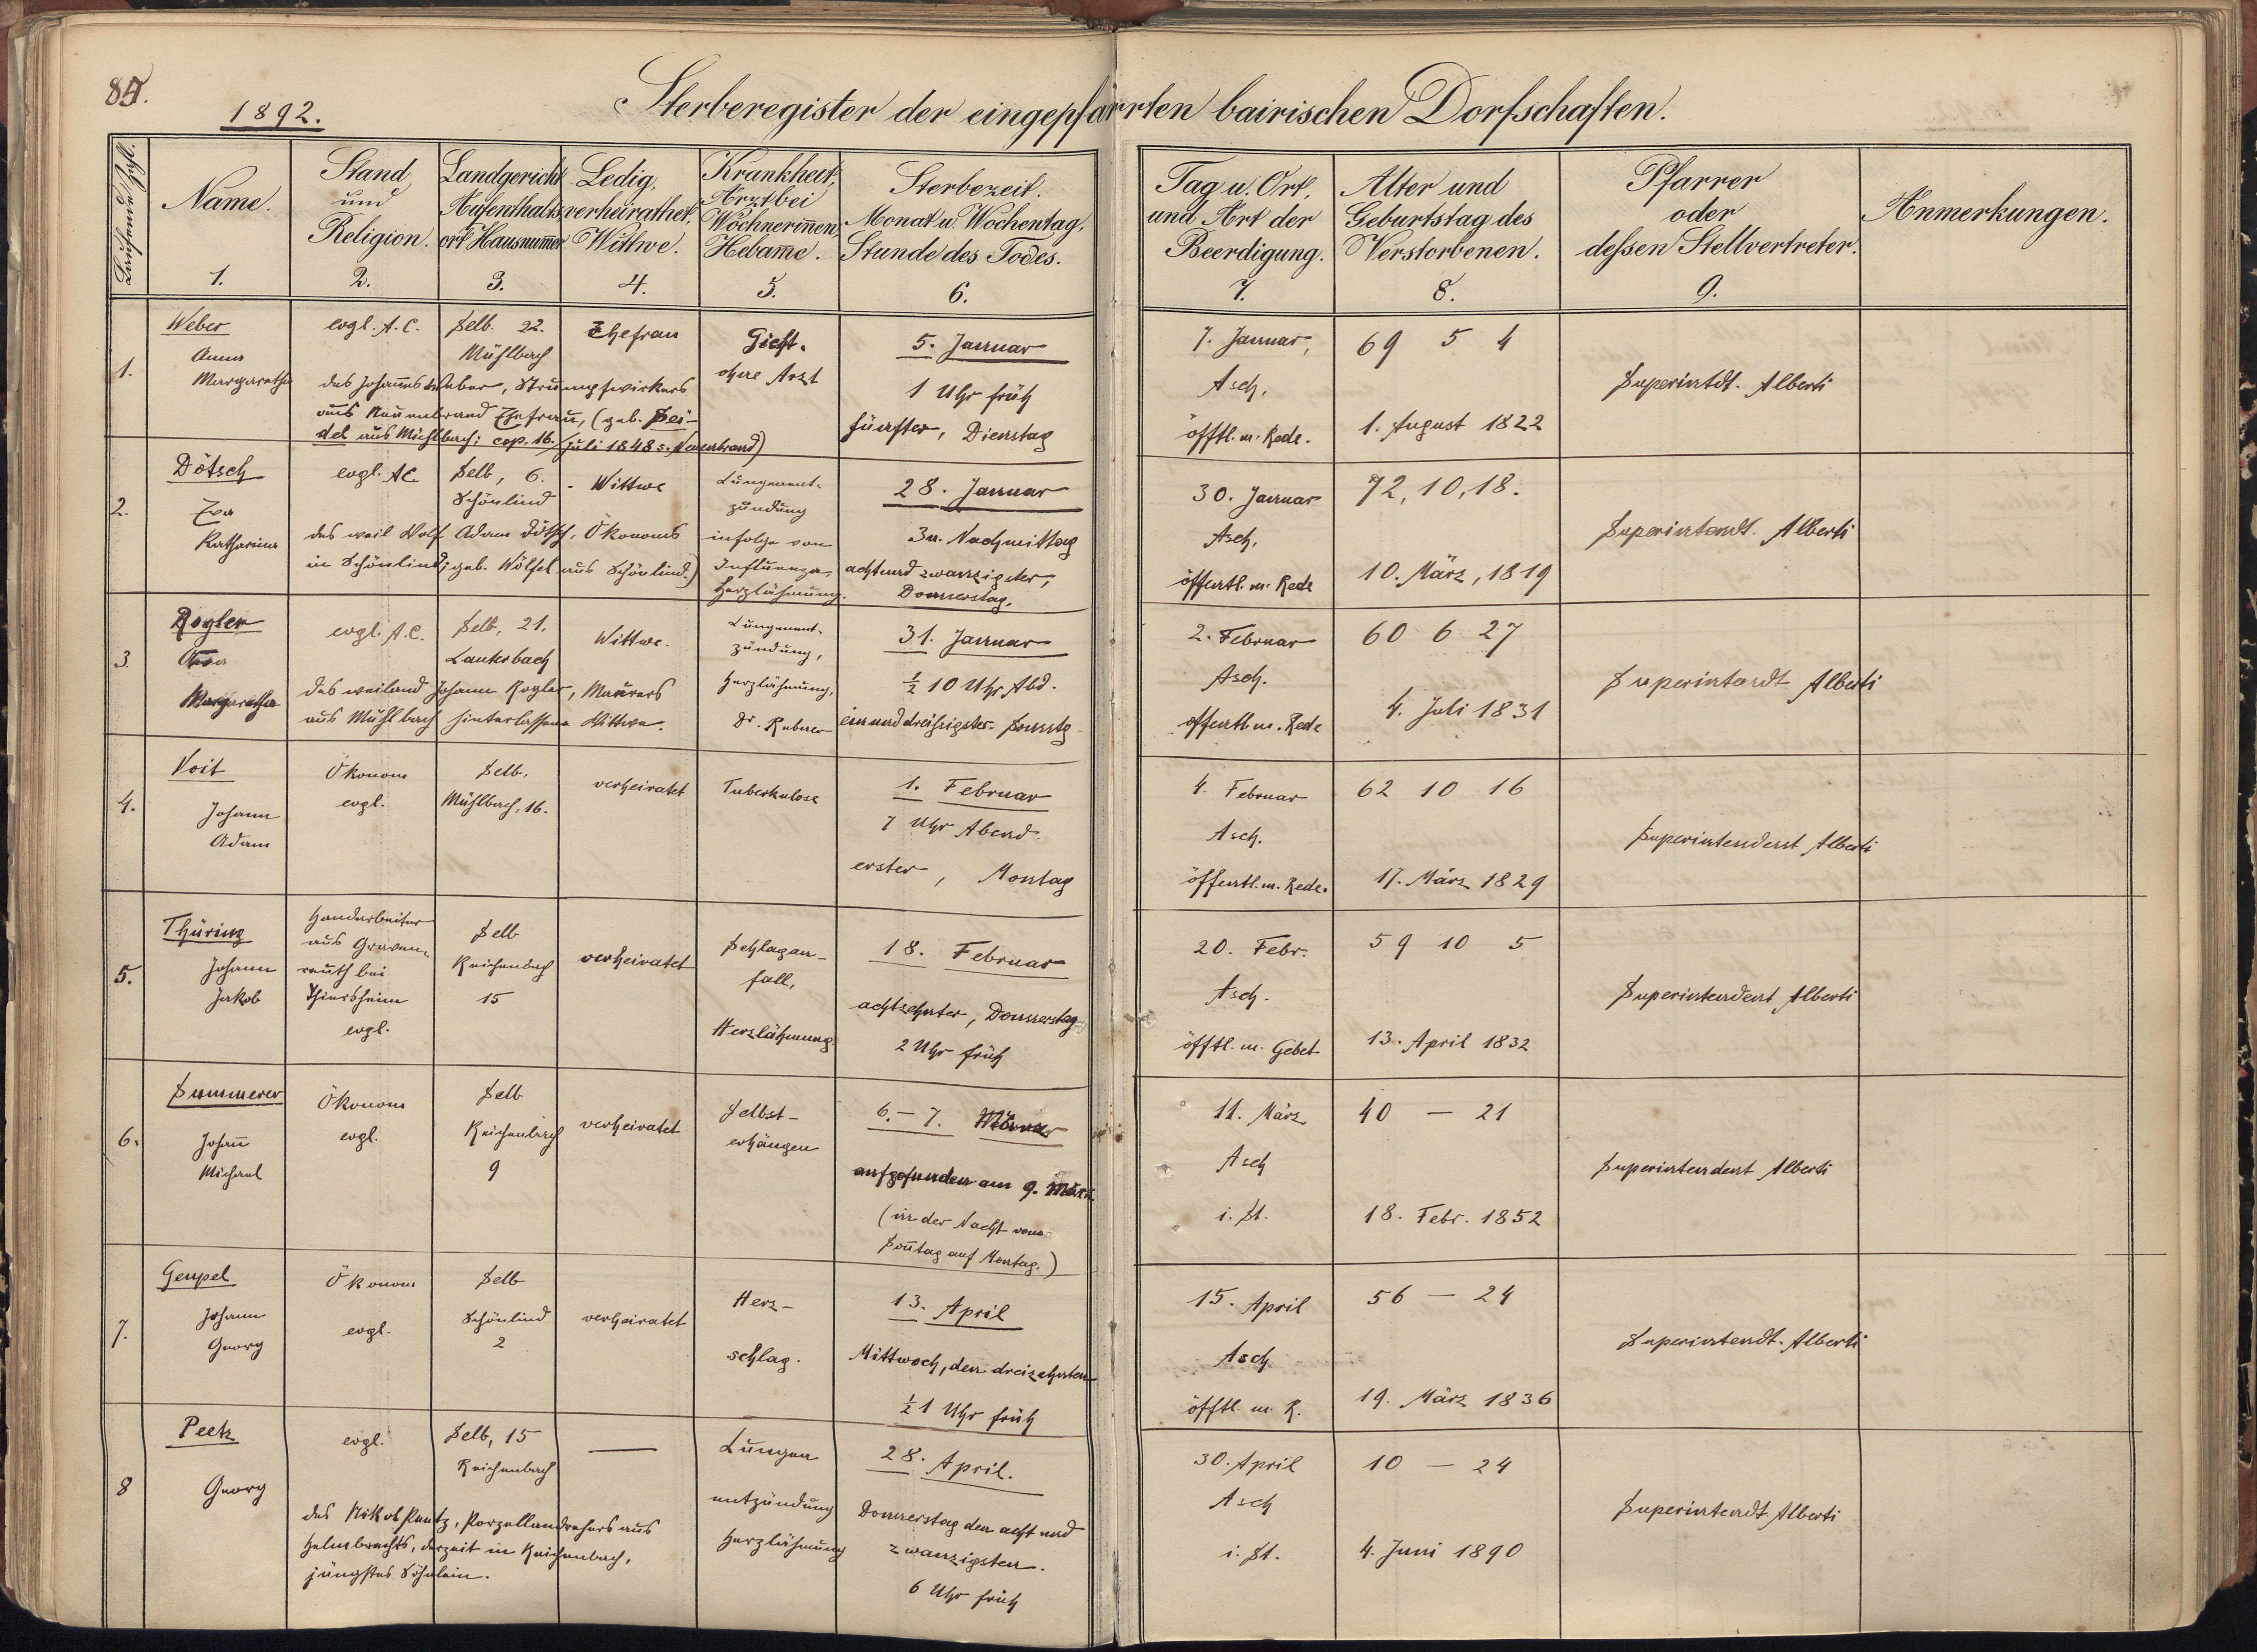 85.
1892.
Sterberegister der eingepfarrten bairischen Dorfschaften.
Laufende Zahl.
Name.
1.
Stand
und
Religion.
2.
Landgericht
Aufenthalts-
ort Hausnum̄er
3.
Ledig,
verheirathet,
Wittwe.
4.
Krankheit,
Arzt bei
Wöchnerin̄en,
Hebam̄e.
5.
Sterbezeit.
Monat u. Wochentag,
Stunde des Todes.
6.
Tag u. Ort,
und Art der
Beerdigung.
7.
Alter und
Geburtstag des
Verstorbenen.
8.
Pfarrer
oder
deßen Stellvertreter.
9.
Anmerkungen.
1.
Weber
Anna
Margaretha
evgl. A. C.
Selb. 22.
Mühlbach
Ehefrau
des Johannes Weber, Strumpfwirkers
aus Neuenbrand Ehefrau, (geb. Sei-
del aus Mühlbach; cop. 16. Juli 1848 s. Neuenbrand)
Gicht.
ohne Arzt
5. Januar
1 Uhr früh
fünfter, Dienstag
7. Januar,
Asch,
öfftl. m. Rede.
69 5 4
1. August 1822
Superintdt. Alberti
2.
Dötsch
Eva
Katharina
evgl. A C.
Selb, 6.
Schönlind
Wittwe
des weil Wolf Adam Dötsch, Ökonoms
in Schönlind; geb. Wölfel aus Schönlind.)
Lungenent-
zündung
infolge von
Influenza,
Herzlähmung.
28. Januar
3 u. Nachmittag
achtundzwanzigster,
Donnerstag,
30. Januar
Asch,
öffentl. m. Rede
72, 10, 18.
10. März, 1819
Superintendt. Alberti
3.
Rogler
Margaretha
evgl. A. C.
Selb, 21.
Lauterbach
Wittwe.
des weiland Johann Rogler, Maurers
aus Mühlbach hinterlassene Wittwe.
Lungenent-
zündung,
Herzlähmung,
Dr.
31. Januar
½ 10 Uhr Abd.
einunddreißigster. Sonntg
2. Februar
Asch.
öffentl. m. Rede
60 6 27
4. Juli 1831
Superintendt Alberti
4.
Voit
Johann
Adam
Ökonom
evgl.
Selb.
Mühlbach, 16.
verheiratet
Tuberkulose
1. Februar
7 Uhr Abend.
erster, Montag
4. Februar
Asch.
öffentl. m. Rede.
62 10 16
17. März 1829
Superintendent Alberti
5.
Thüring
Johann
Jakob
Handarbeiter
aus Graven-
reuth bei
Thiersheim
evgl.
Selb
Reichenbach
15
verheiratet
Schlagan-
fall,
Herzlähmung
18. Februar
achtzehnter, Donnerstag
2 Uhr früh
20. Febr.
Asch.
öfftl. m. Gebet
59 10 5
13. April 1832
Superintendent Alberti
6.
Summerer
Joham̄
Michael
Ökonom
evgl.
Selb
Reichenbach
9
verheiratet
Selbst-
erhängen
6. – 7. März
aufgefunden am 9. März
(in der Nacht vom
Son̄tag auf Montag.)
11. März
Asch
i. St.
40 — 21
18. Febr. 1852
Superintendent Alberti
7.
Geupel
Johann
Georg
Ökonom
evgl.
Selb
Schönlind
2
verheiratet
Herz-
schlag.
13. April
Mittwoch, den dreizehnten
½ 1 Uhr früh
15. April
Asch
öfftl. m. R.
56 — 24
19. März 1836
Superintendt. Alberti
8
Peetz
Georg
evgl.
Selb, 15
Reichenbach
—
des Nikol Peetz, Porzellandrehers aus
Helmbrechts, derzeit in Reichenbach,
jüngstes Söhnlein.
Lungen
entzündung
Herzlähmung
28. April.
Donnerstag den acht und
zwanzigsten.
6 Uhr früh
30. April
Asch
i. St.
10 — 24
4. Juni 1890
Superintendt Alberti